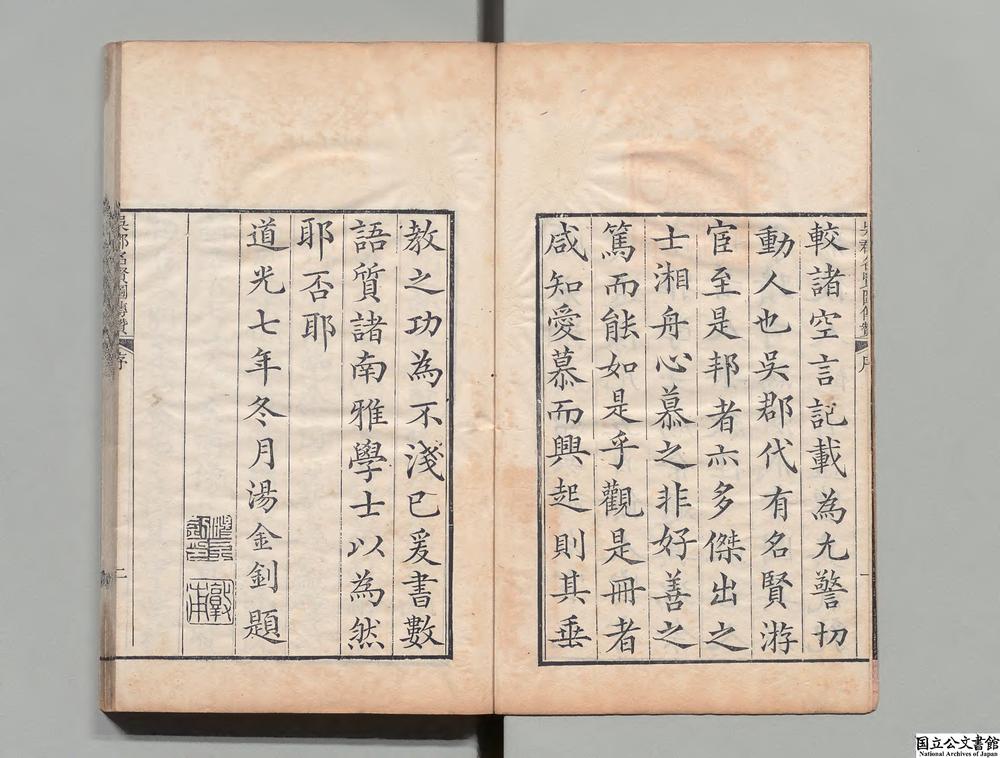 較諸空言記載為尤警切
動人也吳郡代有名賢游
宦至是邦者亦多傑出之
士湘舟心慕之非好善之
篤而能如是乎觀是冊者
咸知愛慕而興起則其垂
吳郡名賢圖傳贊
序
一
教之功為不淺已爰書數
語質諸南雅學士以為然
耶否耶
道光七年冬月湯金釗題
敦甫
吳郡名賢圖傳贊
序
二
国立公文書館
National Archives of Japan